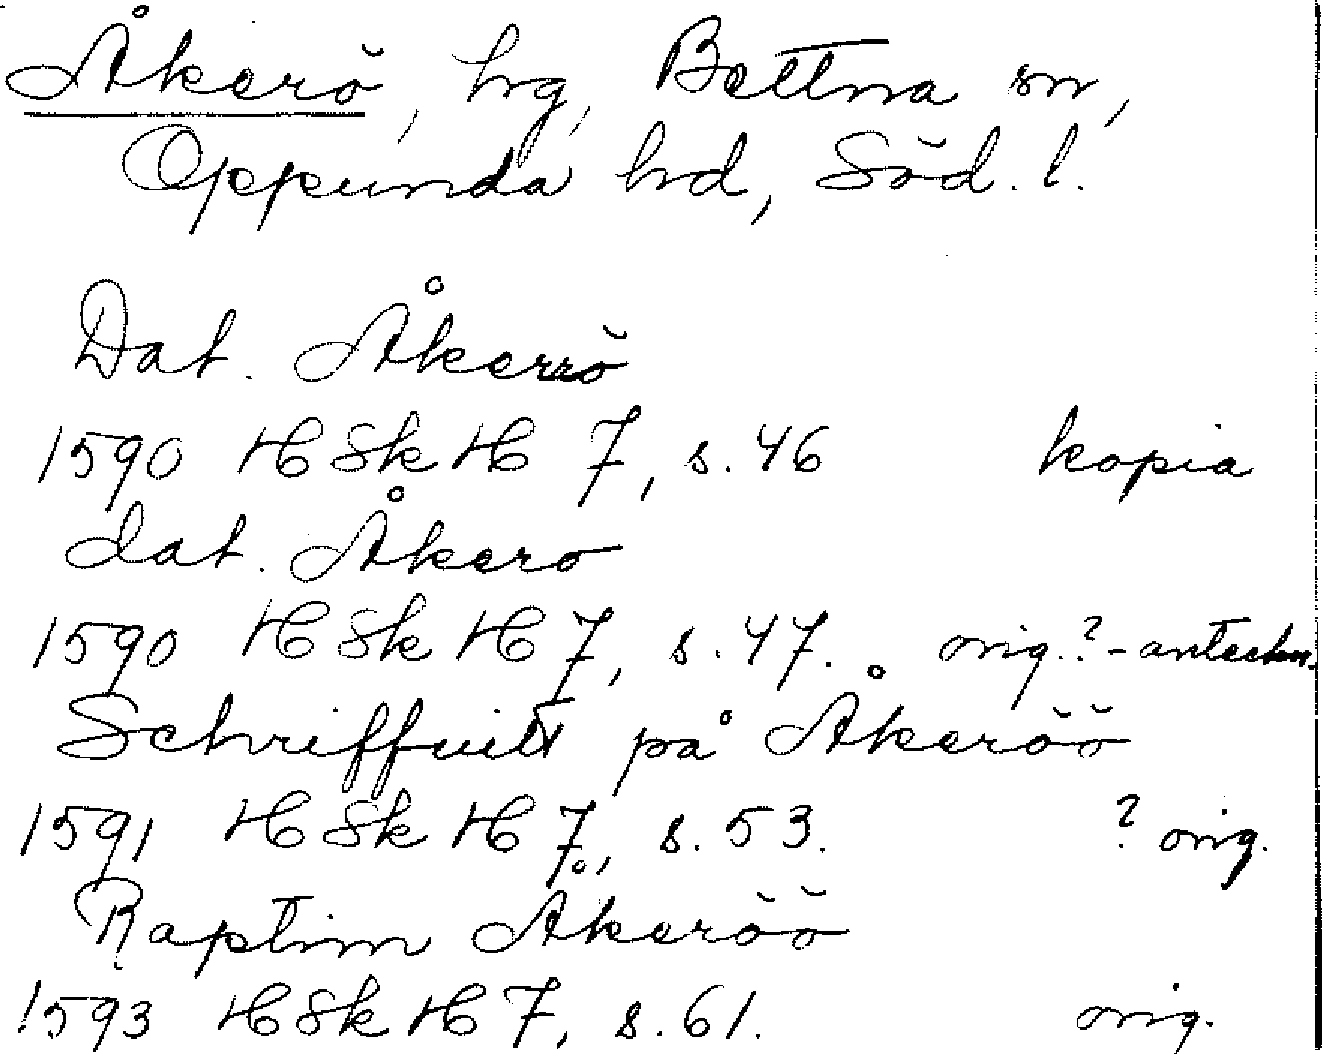 Åkerö, hg, Bettna sn,
Oppunda hd, Söd. l.
Dat. Åkerrö
1590 HSkH 7, s. 46 kopia
dat. Åkero
1590 HSkH 7, s. 47. orig.?-anteckn.
Schriffuitt på Åkeröö
1591 HSkH 7, s. 53. ? orig.
Raptim Åkeröö
1593 HSkH 7, s. 61. orig.